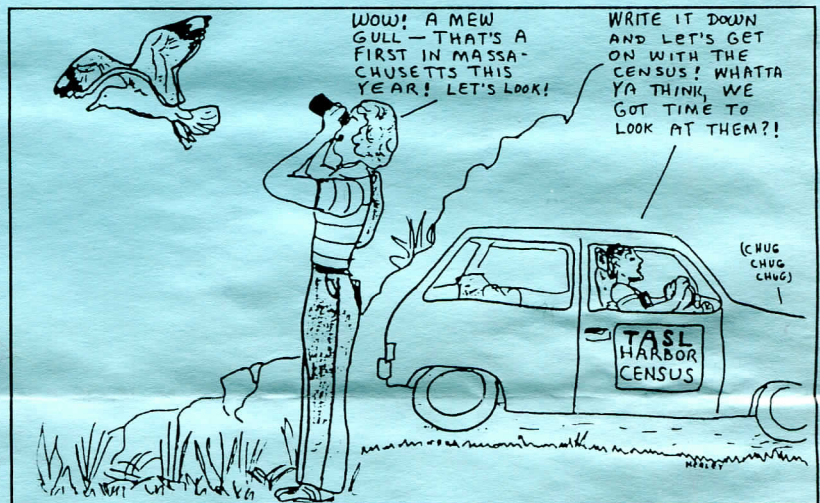 WOW! A MEW
GULL — THAT'S A
FIRST IN MASSA-
CHUSETTS THIS
YEAR! LET'S LOOK!
WRITE IT DOWN
AND LET'S GET
ON WITH THE
CENSUS! WHATTA
YA THINK, WE
GOT TIME TO
LOOK AT THEM?!
(CHUG
CHUG
CHUG)
TASL
HARBOR
CENSUS
HEALEY